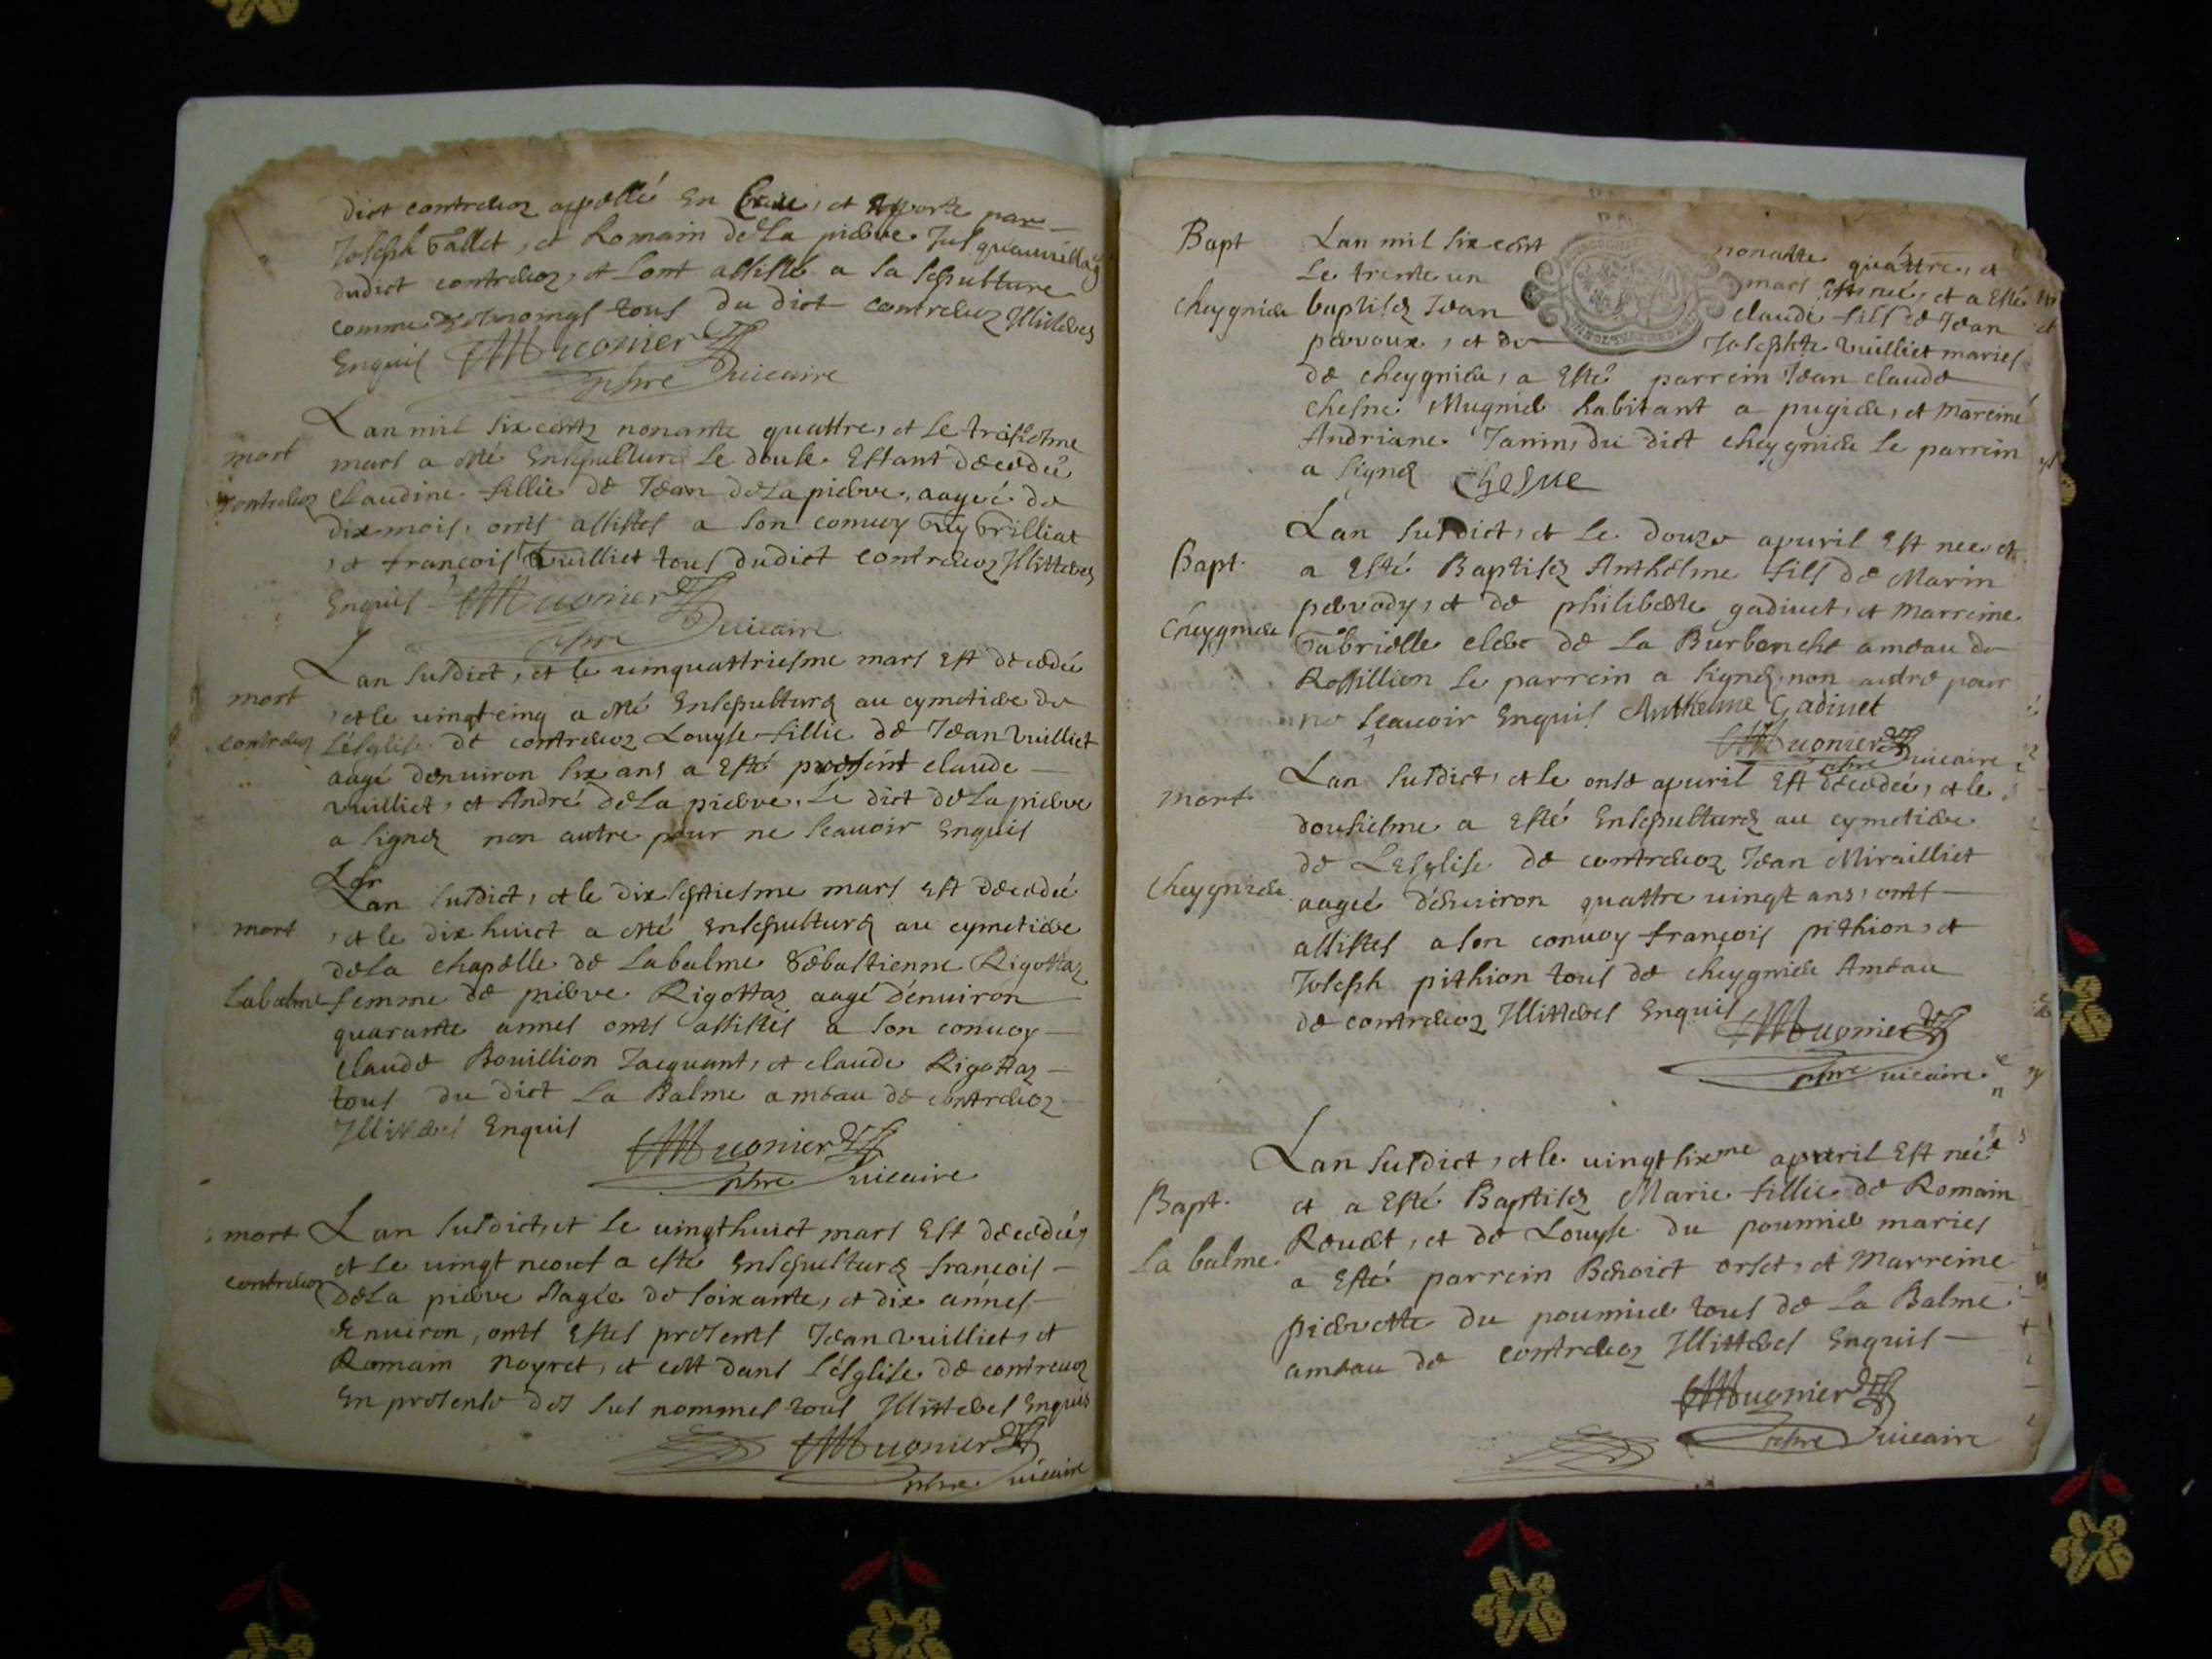 dict contrevoz appellé En et apporte par
Joseph Tallet, et Romain dela pierre Jusqueauvillage
dudict contrevoz, et sont assistés a sa sepulture
comme tesmoings tous du dict contrevoz Illiterés
Enquis Mugnier
pbre vicaire
Lan mil six cents nonante quattre, et le
mort
mars a esté Ensepulturé le douse Estant décédée
contrevoz
Claudine fillie de Jean dela pierre, aagée de
dix mois, onts assistés a son convoy Guy Trilliat
, et françois Vuilliet tous dudict contrevoz Illitterés
Enquis Mugnier
pbre vicaire
Lan susdict, et le vinquattriesme mars Est décédée
mort
, et le vingtcinq a esté Ensepulturé au cymetiere de
contrevoz
L'esglise de contrevoz Louyse fillie de Jean Vuilliet
aagé denuiron six ans a Esté présent claude
Vuilliet, et André dela pierre, Le dict dela pierre
a signé non autre pour ne scauoir Enquis
Lan susdict, et le dix septiesme mars est décédée
mort
, et le dix huict a esté ensepulturé au cymetiere
dela chapelle de Labalme Sébastienne Rigottaz
Labalme
femme de pierre Rigottaz aagé d'enuiron
quarante annes onts assistés a son conuoy
claude Bouillion Jacquant, et claude Rigottaz
tous du dict La Balme ameau de contrevoz
Illitterés Enquis
Mugnier
pbre vicaire
mort
Lan susdict, et le vingthuict mars Est décédé,
et le vingt neouf a esté ensepulturé françois
contrevoz
dela pierre Aagée de soixante, et dix années
Enuiron, onts Estes présents Jean Vuilliet, et
Romain Noyret, et cest dans l'ésglise de contreuoz
En présense des sus nommes tous Illitterés Enquis
Mugnier
pbre vicaire
Bapt
Lan mil six cent nonante quattre, et
Le trente un mars Est né, et a Esté
Cheygnieu
baptisé Jean claude fils de Jean
perroux, et de Josephte Vuilliet mariés
de cheygnieu, a Esté parrein Jean claude
Chesne Mugnier habitant a pugieu, et Mareine
Andriane Janin, du dict cheygnieu le parrein
a signé Chesne
Lan susdict, et le douze apuril Est nee et
Bapt.
a Esté Baptisé Anthelme fils de Marin
perrody, et de philiberte gadiuet, et Marreine
Cheygnieu
Gabrielle clerc de La Burbenche ameau de
Rossillion Le parrein a signé, non autre pour
ne scauoir Enquis Anthelme Gadiuet
Mugnier
pbre vicaire
Lan susdict, et le onse apuril Est décedée, et le
mort
dousiesme a Esté Ensepulturé au cymetiere
de L'Esglise de contrevoz Jean Mirailliet
Cheygnieu
aagée d'énuiron quattre vingt ans, onts
assistés a son conuoy françois pithion, et
Joseph pithion tous de cheygnieu Ameau
de contrevoz Illitterés Enquis
Mugnier
pbre vicaire
Lan susdict, et le vingt sixme apuril Est née
Bapt.
et a Esté Baptisé Marie fillie de Romain
Reuet, et de Louyse du poumier mariés
La balme
a Esté parrein Benoict orset, et Marreine
pierrette du poumier tous de La Balme
ameau de contrevoz Illitterés Enquis
Mugnier
pbre vicaire